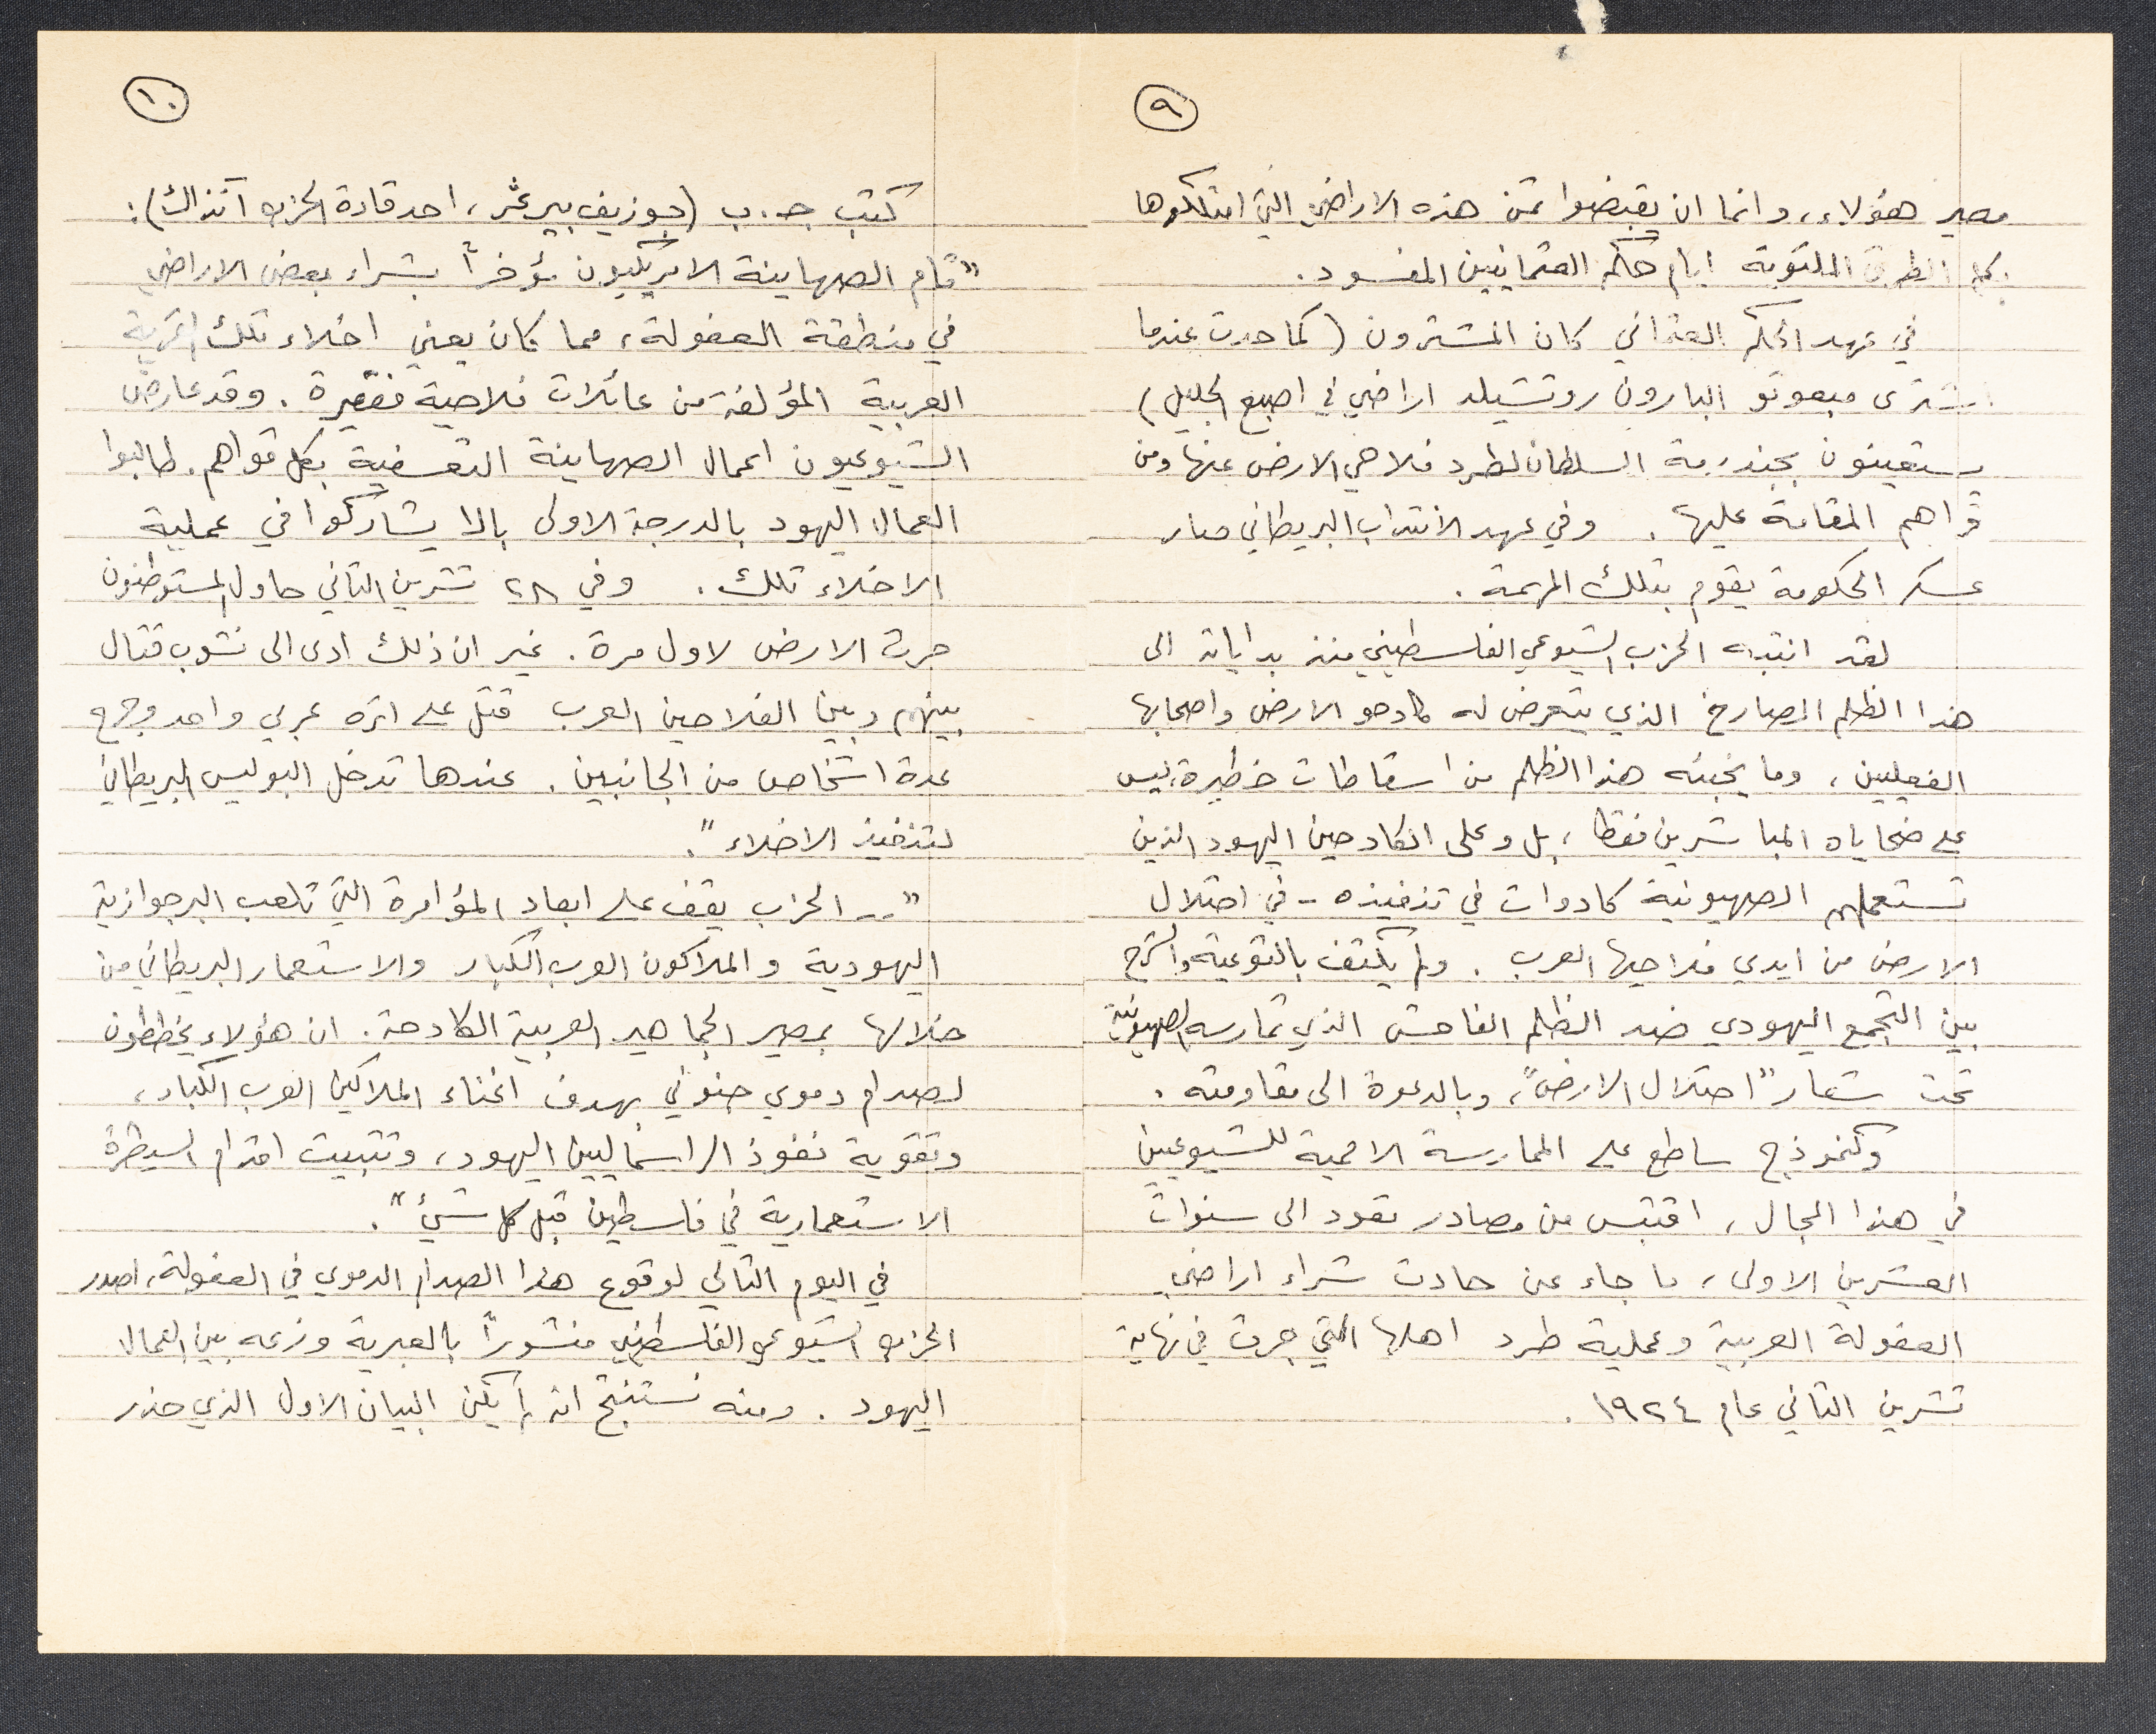 ٩
مصير هؤلاء، وانما ان يقبضوا ثمن هذه الاراضي التي امتلكوها
بكل الطرق الملتوية ايام حكم العثمانيين المفسود.
في عهد الحكم العثماني كان المشترون (كما حدث عندما
اشترى مبعوثو البارون روتشيلد اراضي في اصبع الجليل)
يستعينون بجندرمة السلطان لطرد فلاحي الارض عنها ومن
قراهم المقامة عليها. وفي عهد الانتداب البريطاني صار
عسكر الحكومة يقوم بتلك المهمة.
لقد انتبه الحزب الشيوعي الفلسطيني منذ بداياته الى
هذا الظلم الصارخ الذي يتعرض له كادحو الارض واصحابها
الفعليين، وما يخبئه هذا الظلم من اسقاطات خطيرة، ليس
على ضحاياه المباشرين فقط، بل وعلى الكادحين اليهود الذين
تستعملهم الصهيونية كادوات في تنفيذه - في احتلال
الارض من ايدي فلاحيها العرب. ولم يكتف بالتوعية والشرح
بين التجمع اليهودي ضد الظلم الفاحش الذي تمارسه الصهيونية
تحت شعار "احتلال الارض"، وبالدعوة الى مقاومته.
وكنموذج ساطع على الممارسة الاممية للشيوعيين
في هذا المجال، اقتبس من مصادر تعود الى سنوات
العشرين الاولى، ما جاء عن حادث شراء اراضي
العفولة العربية وعملية طرد اهلها التي جرت في نهاية
تشرين الثاني عام ١٩٢٤.
١٠
كتب ج. ب (جوزيف بيرغر، احد قادة الحزب آنذاك):
"قام الصهاينة الامريكيون مؤخراً بشراء بعض الاراضي
في منطقة العفولة، مما كان يعني اخلاء تلك القرية
العربية المؤلفة من عائلات فلاحية فقيرة. وقد عارض
الشيوعيون اعمال الصهاينة التعسفية بكل قواهم. طالبوا
العمال اليهود بالدرجة الاولى بالا يشاركوا في عملية
الاخلاء تلك. وفي ٢٨ تشرين الثاني حاول المستوطنون
حرث الارض لاول مرة. غير ان ذلك ادى الى نشوب قتال
بينهم وبين الفلاحين العرب قتل على اثره عربي واحد وجرح
عدة اشخاص من الجانبين. عندها تدخل البوليس البريطاني
لتنفيذ الاخلاء".
".. الحزب يقف على ابعاد المؤامرة التي تلعب البرجوازية
اليهودية والملاكون العرب الكبار والاستعمار البريطاني من
خلالها بمصير الجماهير العربية الكادحة. ان هؤلاء يخططون
لصدام دموي جنوني بهدف اغناء الملاكين العرب الكبار،
وتقوية نفوذ الراسماليين اليهود، وتثبيت اقدام السيطرة
الاستعمارية في فلسطين قبل كل شيئ".
في اليوم التالي لوقوع هذا الصدام الدموي في العفولة، اصدر
الحزب الشيوعي الفلسطيني منشوراً بالعبرية وزعه بين العمال
اليهود. ومنه نستنتج انه لم يكن البيان الاول الذي حذر